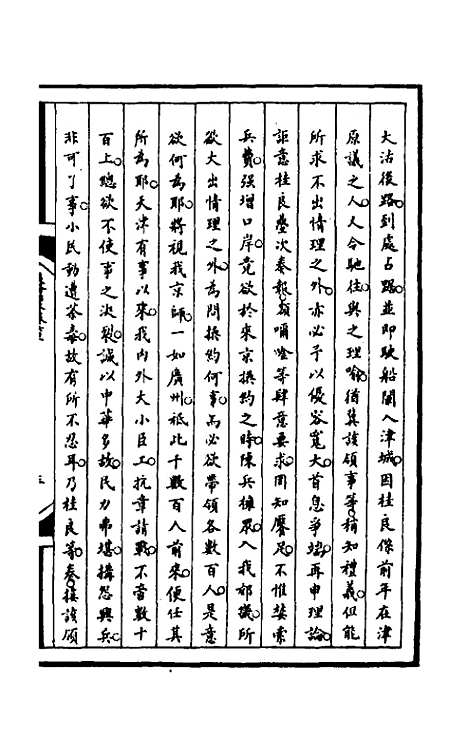 大沽後路到處占踞並即駛船闖入津城因桂良係前年在津
原議之人人令馳往與之理喻猶冀該領事等稍知禮義但能
所求不出情理之外亦必予以優容寬大首息爭端再申理論
詎意桂良疊次奏報額嘟唫等肆意要求罔知饜足不惟婪索
兵費强增口岸竟欲於來京換約之時陳兵擁眾入我郊畿所
欲大出情理之外為問換約何事而必欲帶領各數百人是意
欲何為耶將視我京師一如廣州祗此千數百人前來便任其
所為耶天津有事以來我內外大小臣工抗章請戰不啻數十
百上總欲不使事之決裂誠以中華多故民力弗堪搆怨興兵
非可了事小民動遭荼毒故有所不忍耳乃桂良等奏接該領